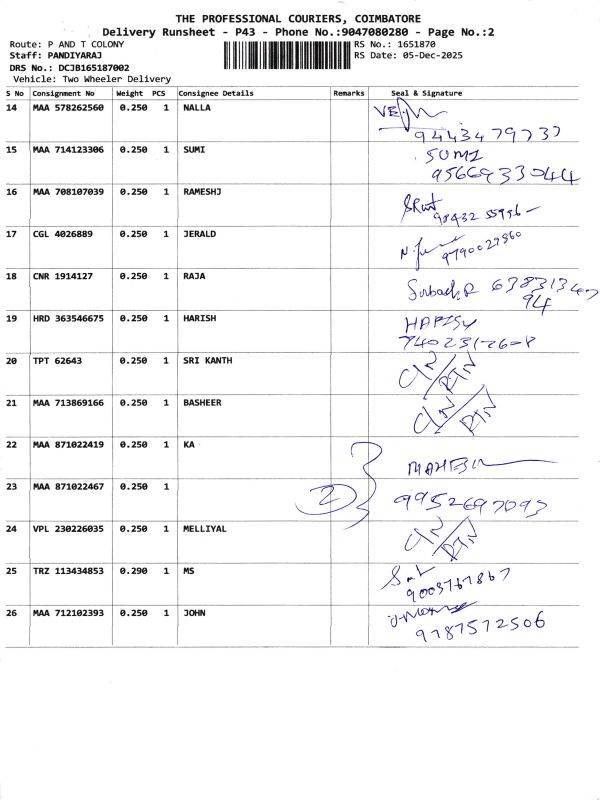 THE PROFESSIONAL COURIERS, COIMBATORE
Delivery Runsheet - P43 - Phone No.:9047080280 - Page No.:2
Route: P AND T COLONY
RS No.: 1651870
Staff: PANDIYARAJ
RS Date: 05-Dec-2025
DRS No.: DCJB165187002
Vehicle: Two Wheeler Delivery
S No Consignment No Weight PCS Consignee Details Remarks Seal & Signature
14 MAA 578262560 0.250 1 NALLA
9443479737
15 MAA 714123306 0.250 1 SUMI SUMI
9566933044
16 MAA 708107039 0.250 1 RAMESHJ
17 CGL 4026889 0.250 1 JERALD
9790027560
18 CNR 1914127 0.250 1 RAJA
94
19 HRD 363546675 0.250 1 HARISH HARISH
20 TPT 62643 0.250 1 SRI KANTH
RTN
21 MAA 713869166 0.250 1 BASHEER
RTN
22 MAA 871022419 0.250 1 KA
MAHESH
23 MAA 871022467 0.250 1
2 9952697093
24 VPL 230226035 0.250 1 MELLIYAL
RTN
25 TRZ 113434853 0.290 1 MS
9003767867
26 MAA 712102393 0.250 1 JOHN
9787572506